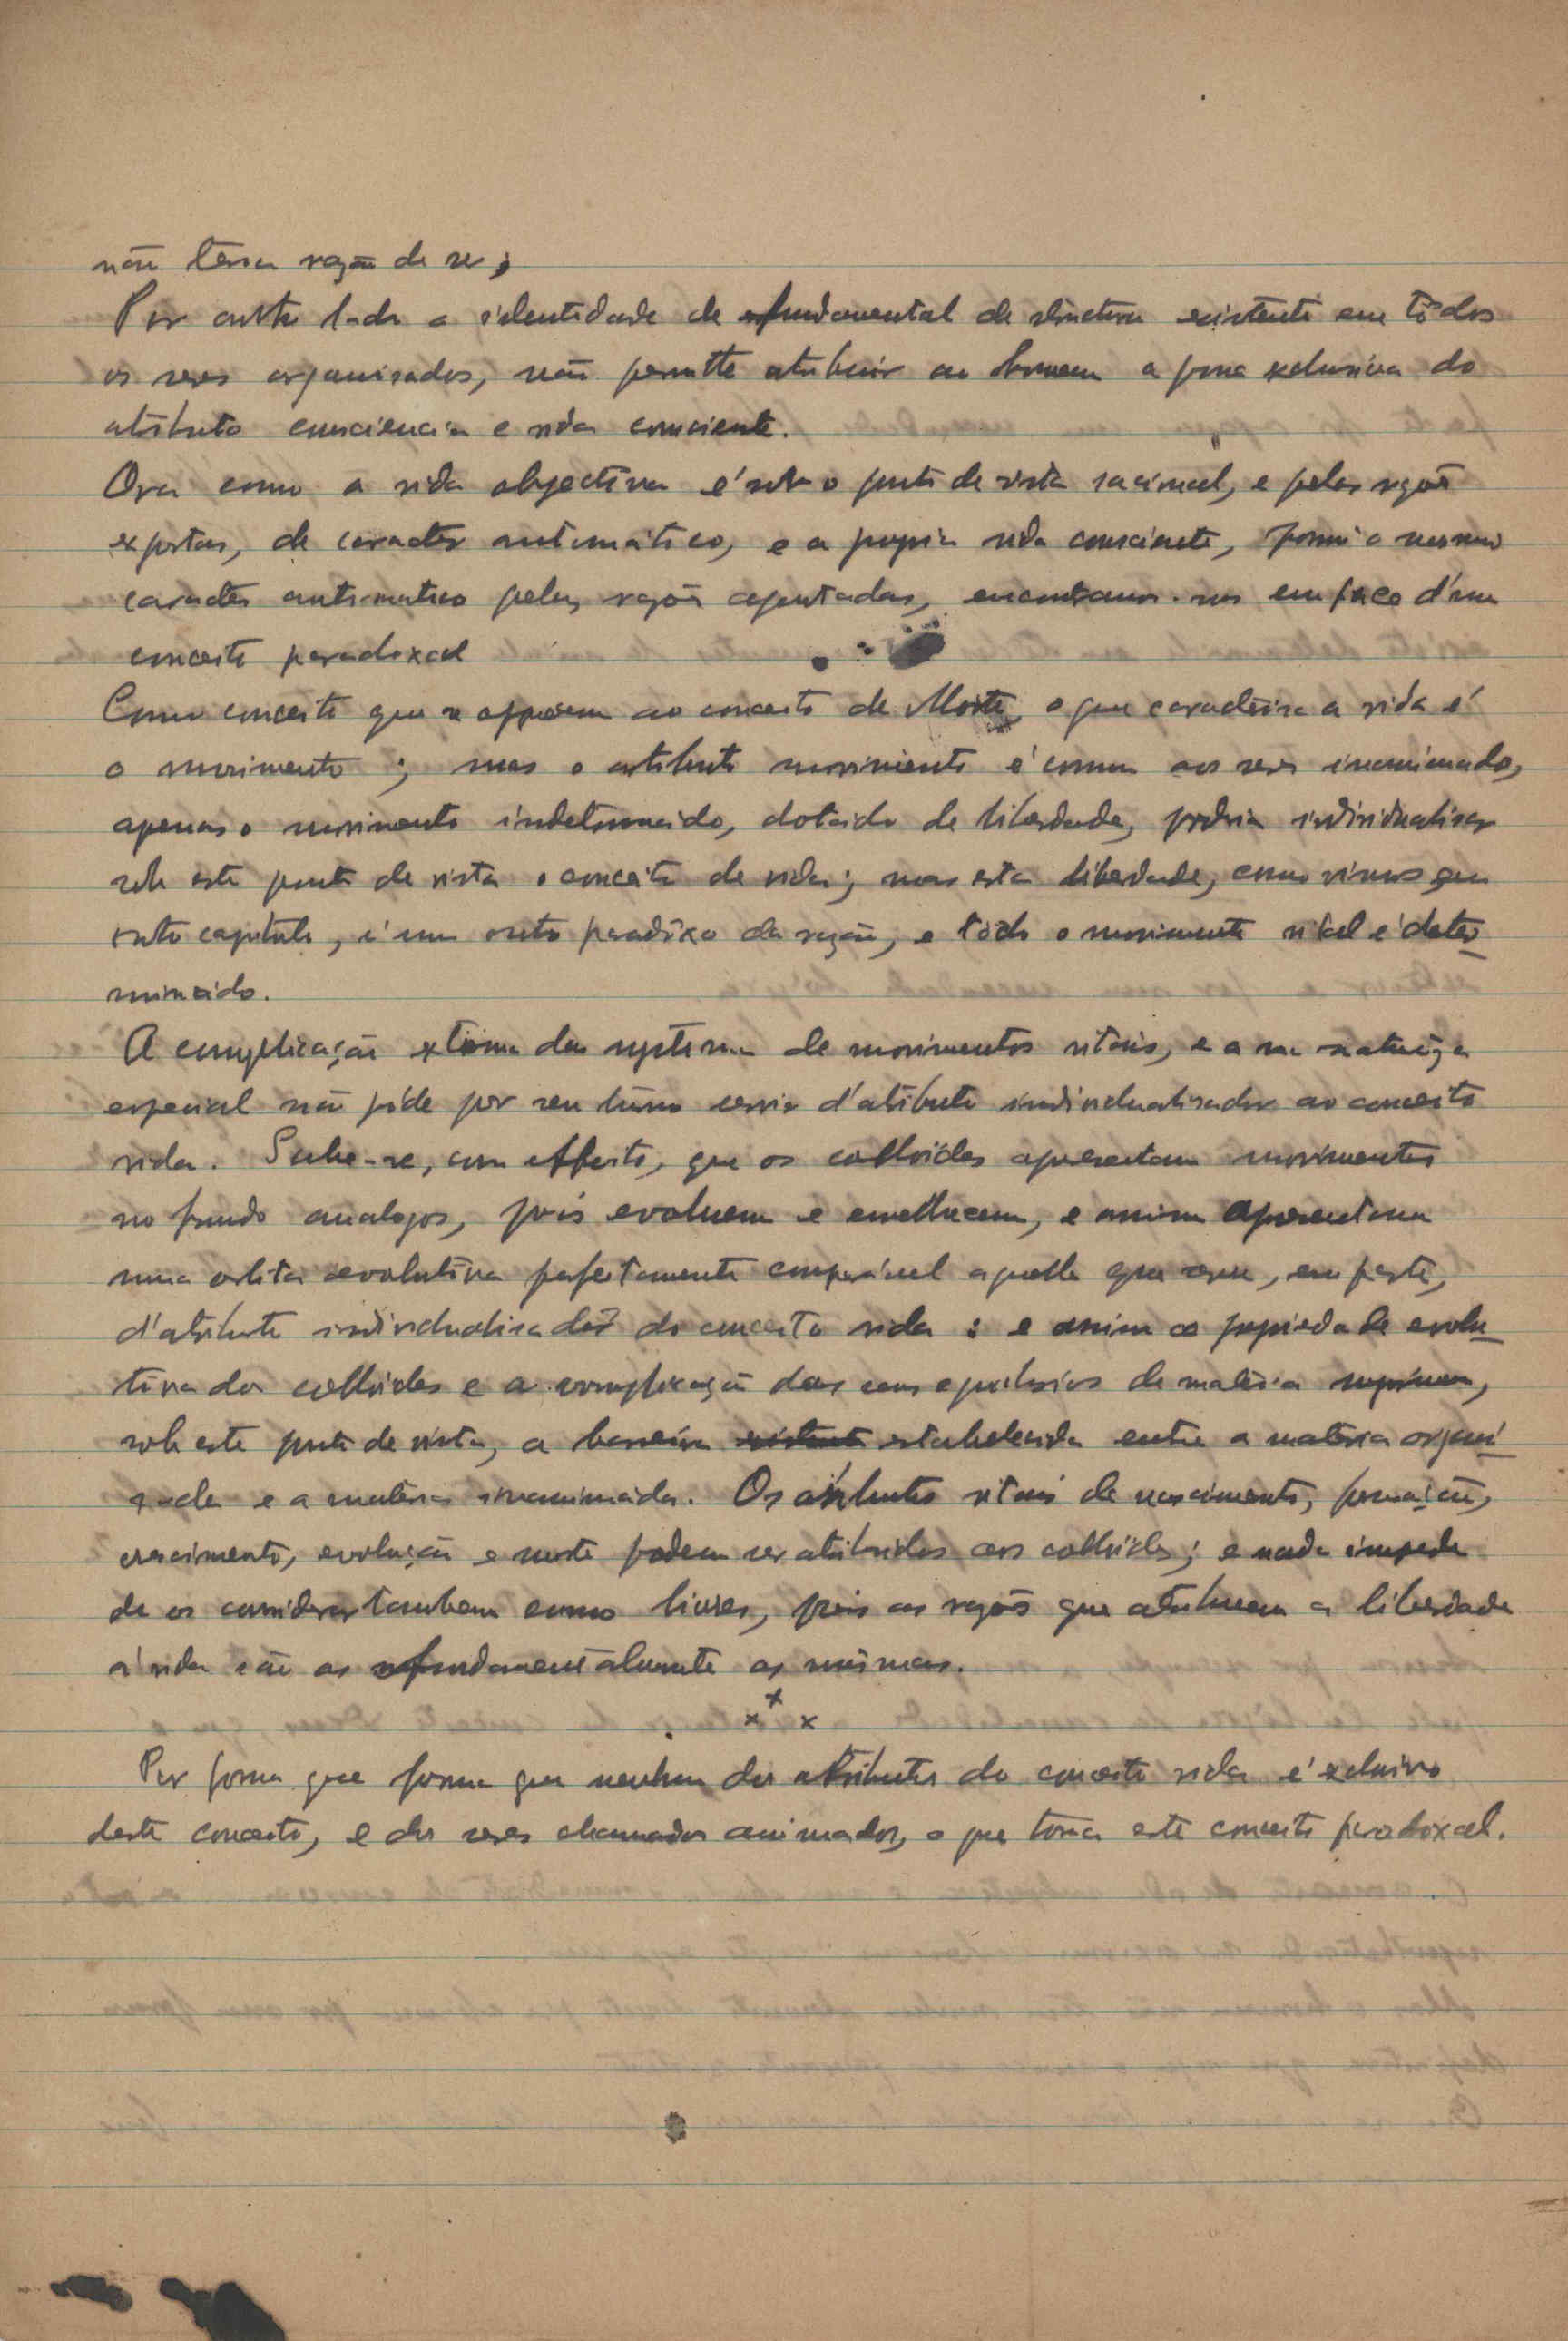 não teria razão de ser;
Por outro lado a identidade de fundamental de structura existente em tôdos
os seres organisados, não permitte attribuir ao Homem a posse exclusiva do
atributo consciencia e vida consciente.
Ora como a vida objectiva é sob o ponto de vista racional, e pelas razões
expostas, de caracter automático, e a propria vida consciente, possui o mesmo
caracter automatico pelas razões apontadas, encontramo-nos em face d'um
conceito paradoxal
Como conceito que se oppõem ao conceito de Morte, o que caracterisa a vida é
o movimento ; mas o attributo movimento é comum aos seres inanimados,
apenas o movimento indeterminado, dotado de liberdade, podria individualisar
sob este ponto de vista o conceito de vida; mas esta liberdade, como vimos em
outro capitulo, é um outro paradoxo da razão, e todo o movimento vital é deter
minado.
A complicação extrema do systema de movimentos vitais, e a sua natureza
especial não póde por seu turno servir d'atributo individualisador ao conceito
vida. Sabe-se, com effeito, que os colloides apresentam movimentos
no fundo analogos, pois evoluem e envelhecem, e assim apresentam
uma orbita evolutiva perfeitamente comparavel aquella que serve, em parte,
d'atributo individualisador do conceito vida : e assim a propriedade evolu
tiva dos colloides e a complicação dos seus equilibrios de materia suprimem,
sob este ponto de vista, a barreira estabelecida entre a materia organi
zada e a materia inanimada. Os atributos vitais de nascimento, formação,
crescimento, evolução e morte podem ser atribuidos aos colloides; e nada impede
de os considerar tambem como livres, pois as razões que atribuem a liberdade
á vida são as fundamentalmente as mesmas.
x x x
Por forma que forma que nenhum dos atributos do conceito vida é exclusivo
deste conceito, e dos seres chamados animados, o que torna este conceito paradoxal.